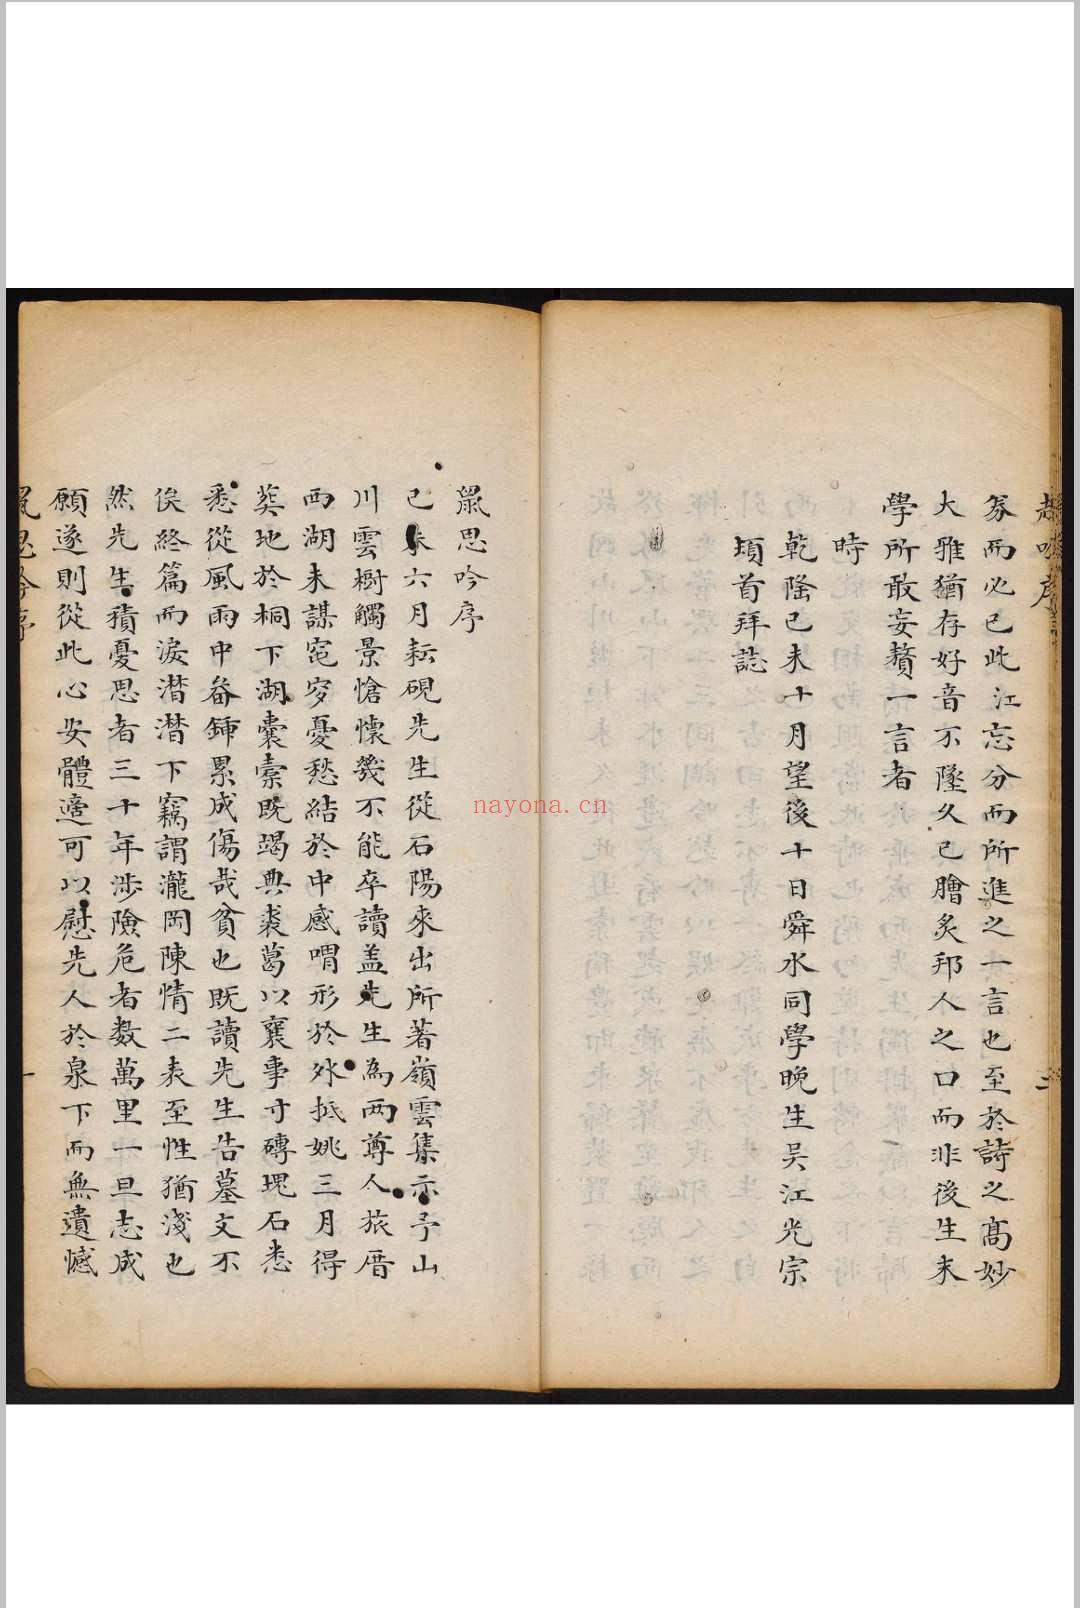 務而必已此江忘分而所進之一言也至於詩之髙妙
大雅猶存好音不墜久已膾炙邦人之口而非後生末
學所敢妄贅一言者
時
乾隆己未十月望後十日舜水同學晚生吴江光宗
頃首拜誌
鼠思吟序
己未六月耘硯先生從石陽來出所著嶺雲集示予山
川雲樹觸景愴懷幾不能卒讀盖先生為两尊人旅厝
西湖未謀窀穸憂愁結於中感喟形於外抵姚三月得
葬地於桐下湖囊槖既竭典裘葛以襄事寸磚塊石悉
悉從風雨中畚鍤累成傷哉貧也既讀先生告墓文不
俟終篇而淚潸潸下竊謂瀧岡陳情二表至性猶淺也
然先生積憂思者三十年涉險危者数萬里一旦志成
願遂則從此心安體適可以慰先人於泉下而無遺憾
鼠思吟序
一
nayona.cn